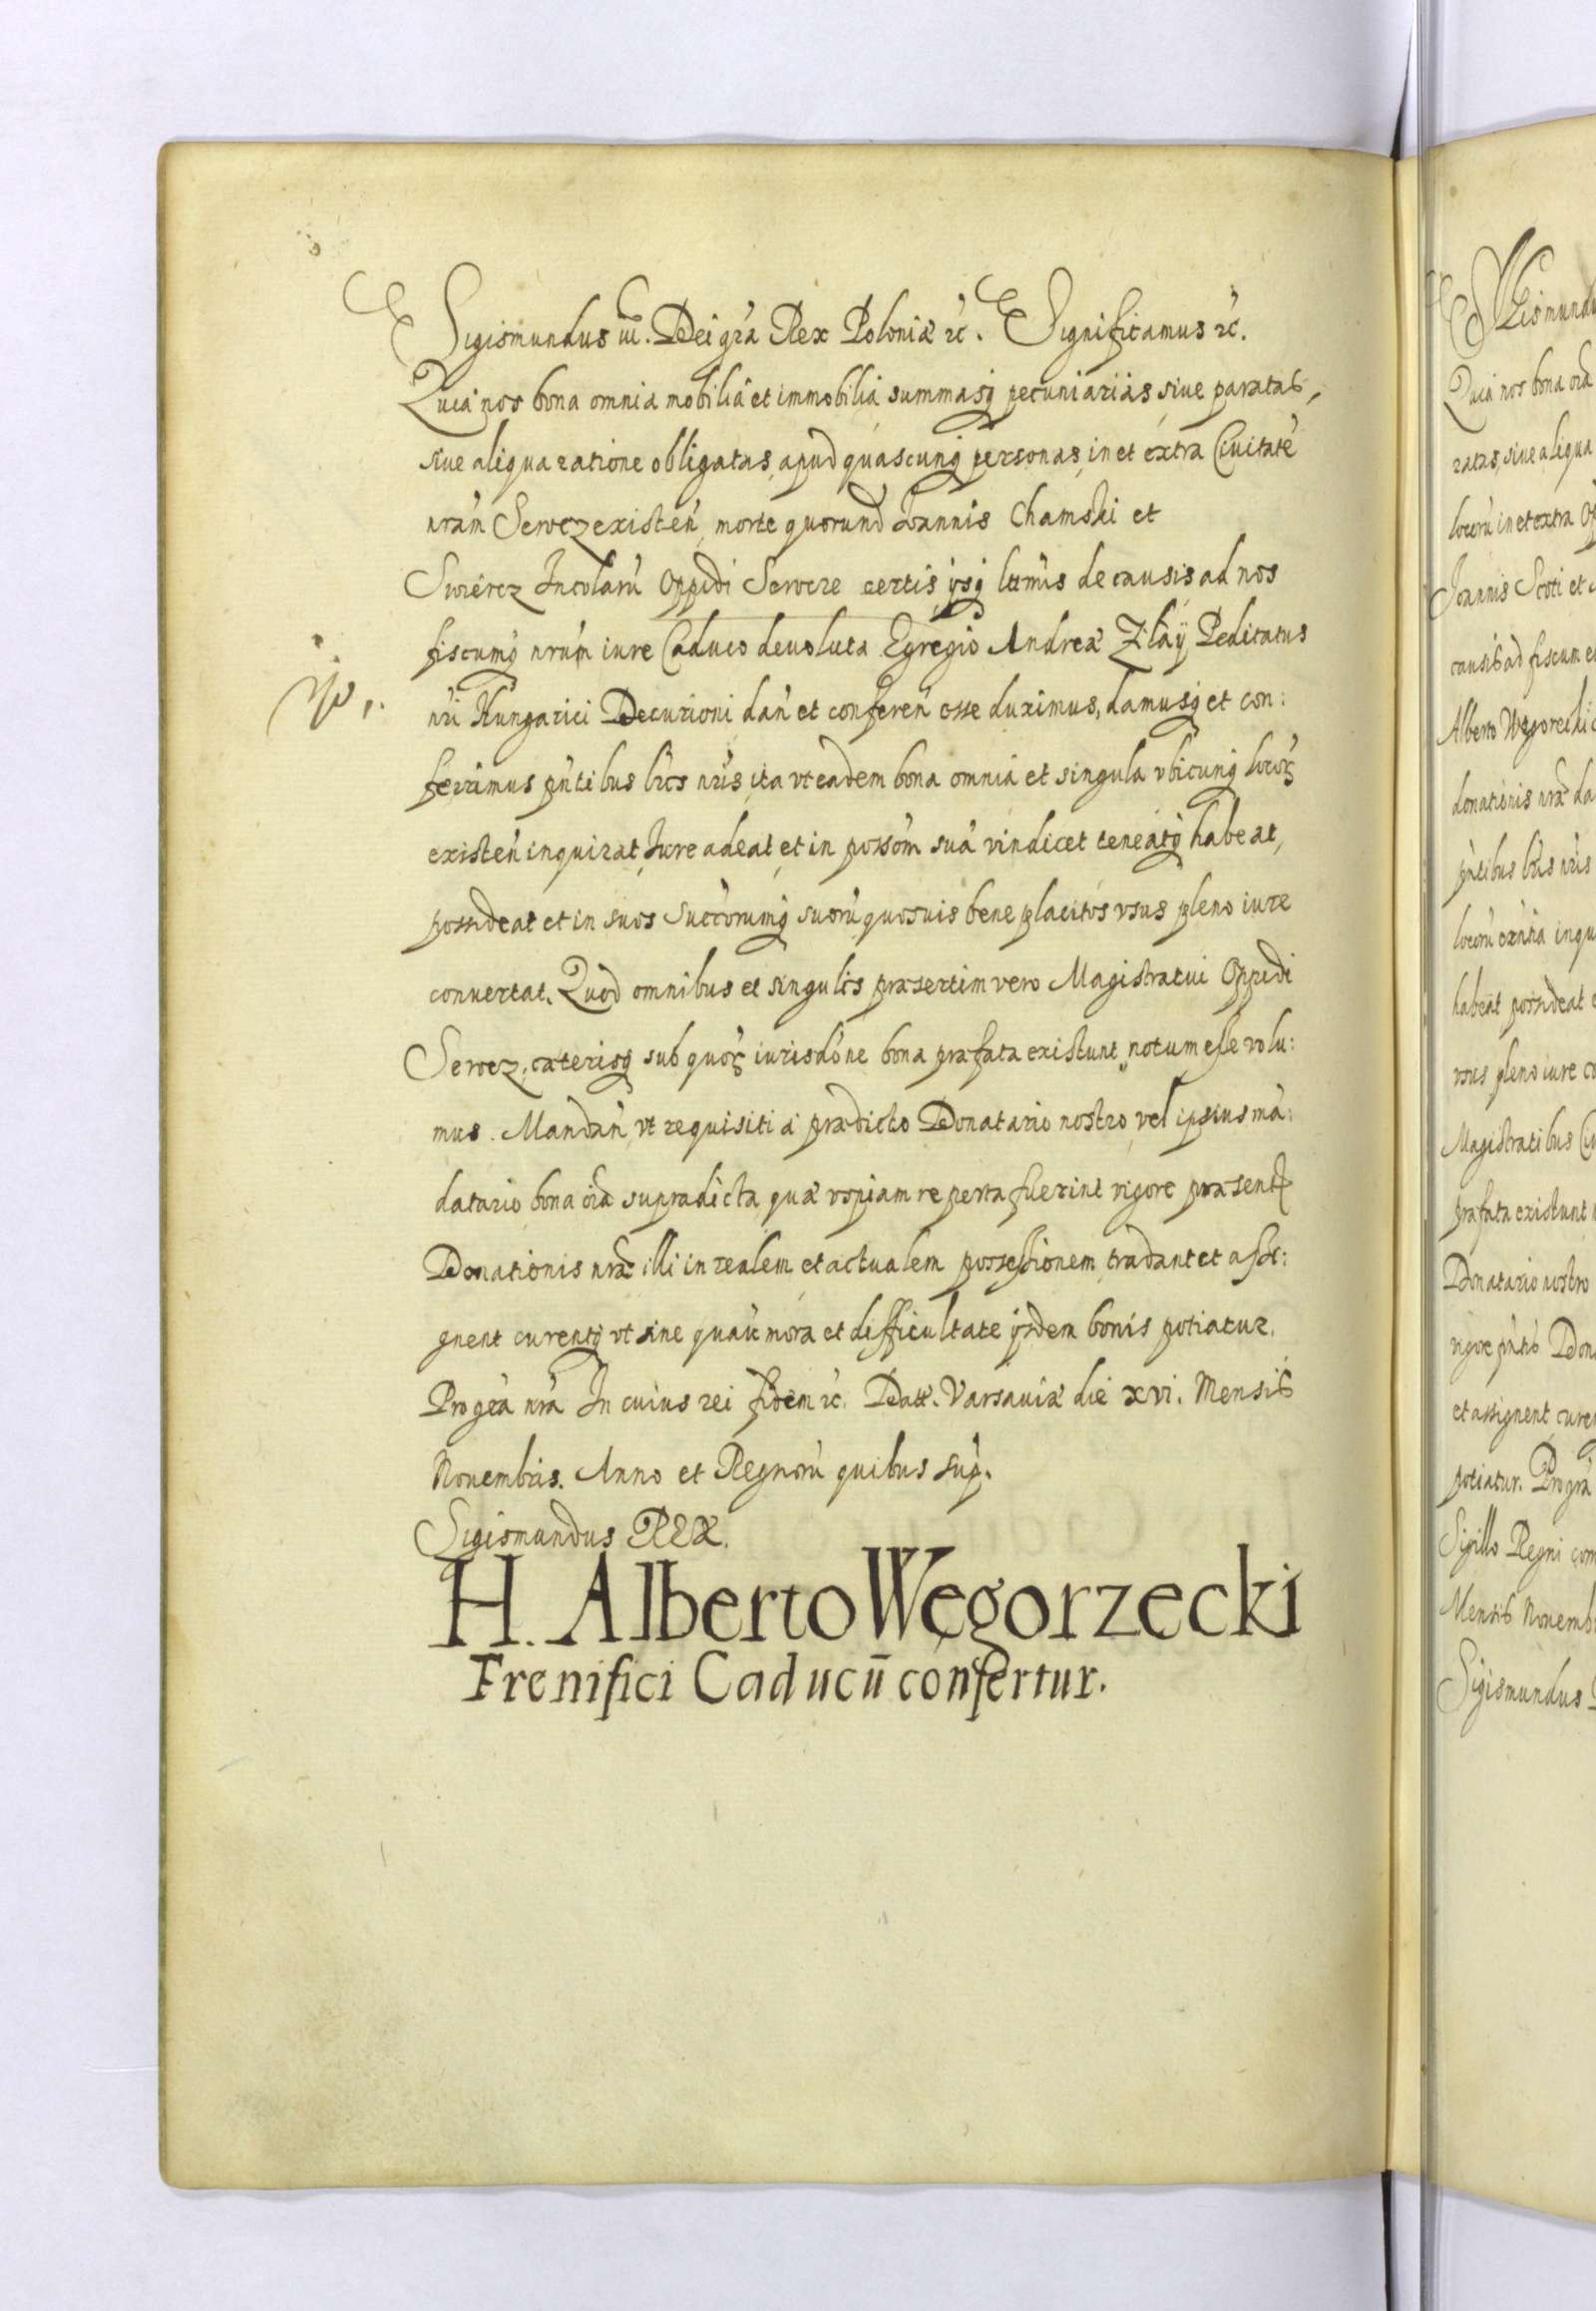 Sigismundus iii. Dei gra͂ Rex Poloniæ ꝛc. Significamus ꝛc.
Quia nos bona omnia mobilia et immobilia summasq̃ pecuniarias siue paratas,
siue aliqua ratione obligatas, apud quascunq̃ personas, in et extra Ciuitatẽ
nrãm Serocz existeñ, morte quorund Joannis Chamski et
Swiercz Incolarũ Oppidi Serocze certis ijsq̃ lttmis de causis ad nos
fiscumq̃ nrũm iure Caduco deuoluta Egregio Andreæ Zilaÿ Peditatus
nri Hungarici Decurioni dañ et confereñ esse duximus, damusq̃ et con:
ferimus pñtibus lrĩs nrĩs ita vt eadem bona omnia et singula vbicunq̃ locoꝝ
existeñ inquirat, Iure adeat, et in possõm suã vindicet teneatq̃ habeat,
possideat et in suos Succorumq̃ suorũ quosuis bene placitos vsus pleno iure
conuertat. Quod omnibus et singulis præsertim vero Magistratui Oppidi
Serocz, cæterisq̃ sub quoꝝ iurisdõne bona præfata existunt notum esse volu:
mus. Mandañ vt requisiti a prædicto Donatario nostro vel ipsius mã:
datario bona oĩa supradicta quæ vspiam reperta fuerint vigore præsentis
Donationis nræ illi in realem et actualem possessionem tradant et assi:
gnent curentq̃ vt sine quauis mora et difficultate ijsdem bonis potiatur.
Pro gra͂ nra͂ In cuius rei fidem ꝛc. Datt. Varsauiæ die xvi. Mensis
Nouembris. Anno et Regnorũ quibus sup.
Sigismundus REX.
H. Alberto Węgorzecki
Frenifici Caducũ confertur.